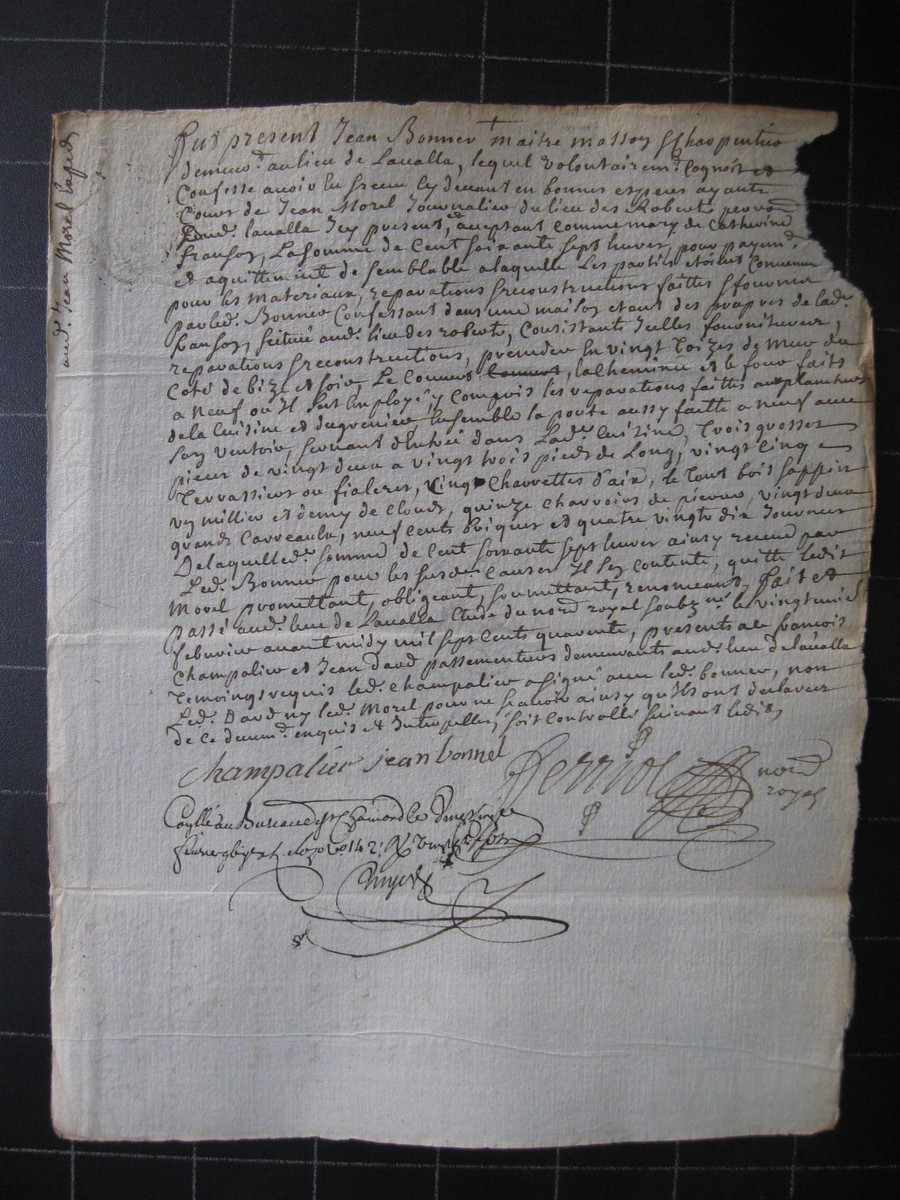 Fut present Jean Bonner maitre masson & Charpentier
demeur.t au lieu de Lavalla, lequel volontairem.t Cognoit et
Confesse avoir Eu & receu Cy devant en bonnes espèces ayants
Cours de Jean Morel Journalier du lieu des Roberts
aud. lavalla Icy present, & aceptant comme mary de Catherine
franson, La somme de Cent soixante sept livres, pour payem.t
et aquittement de semblable a laquelle Les parties etoient Convenues
pour les materiaux, reparations & reconstructions faittes & fournies
par led. Bonner Confessant dans une maison etant des propres de lad.
franson, scituée aud. lieu des roberts, Consistant Icelles fournitures,
reparations & reconstructions, premier En vingt Toizes de mur du
Coté de bize et soir Le Couvert, la cheminée et le four faits
a Neuf ou Il s'est Employé, y Compris les reparations faittes aux planchers
de la Cuisine et du grenier Ensemble la porte aussy faitte a neuf avec
son ventoir, servant d'Entrée dans Lad. Cuisine, Trois grosses
pieces de vingt deux a vingt trois pieds de Long, vingt Cinq
Terrassiers ou fialeres, vingt Charrettes d'aix, le Tout bois sappin
un millier et demy de Clouds, quinze Charrois de pierres, vingt deux
grands Carreaulx, neuf Cents briques et quatre vingts dix Journées
De laquelle d. somme de Cent soixante sept livres ainsy receue par
Led. Bonner pour les susd. Causes Il s'en Contente, quitte ledit
Morel promettant, obligeant, soumettant, renonceant, fait et
passé aud. lieu de Lavalla Etude du no.re royal soubz.né le vingtunie
febvrier avant midy mil sept Cents quarente, presents
Champalier et Jean David passementiers demeurants aud. lieu de lavalla
Temoings requis led. Champalier a signé avec led. bonner, non
Led. David ny led. Morel pour ne scavoir ainsy qu'ils ont declaré
de ce deuem.t enquis et Interpellés, soit Controllé suivant l'edit
Champalier jean bonnel
Ferriol no.re
royal
au Bureau de St Chamond le
aud. Jean Morel